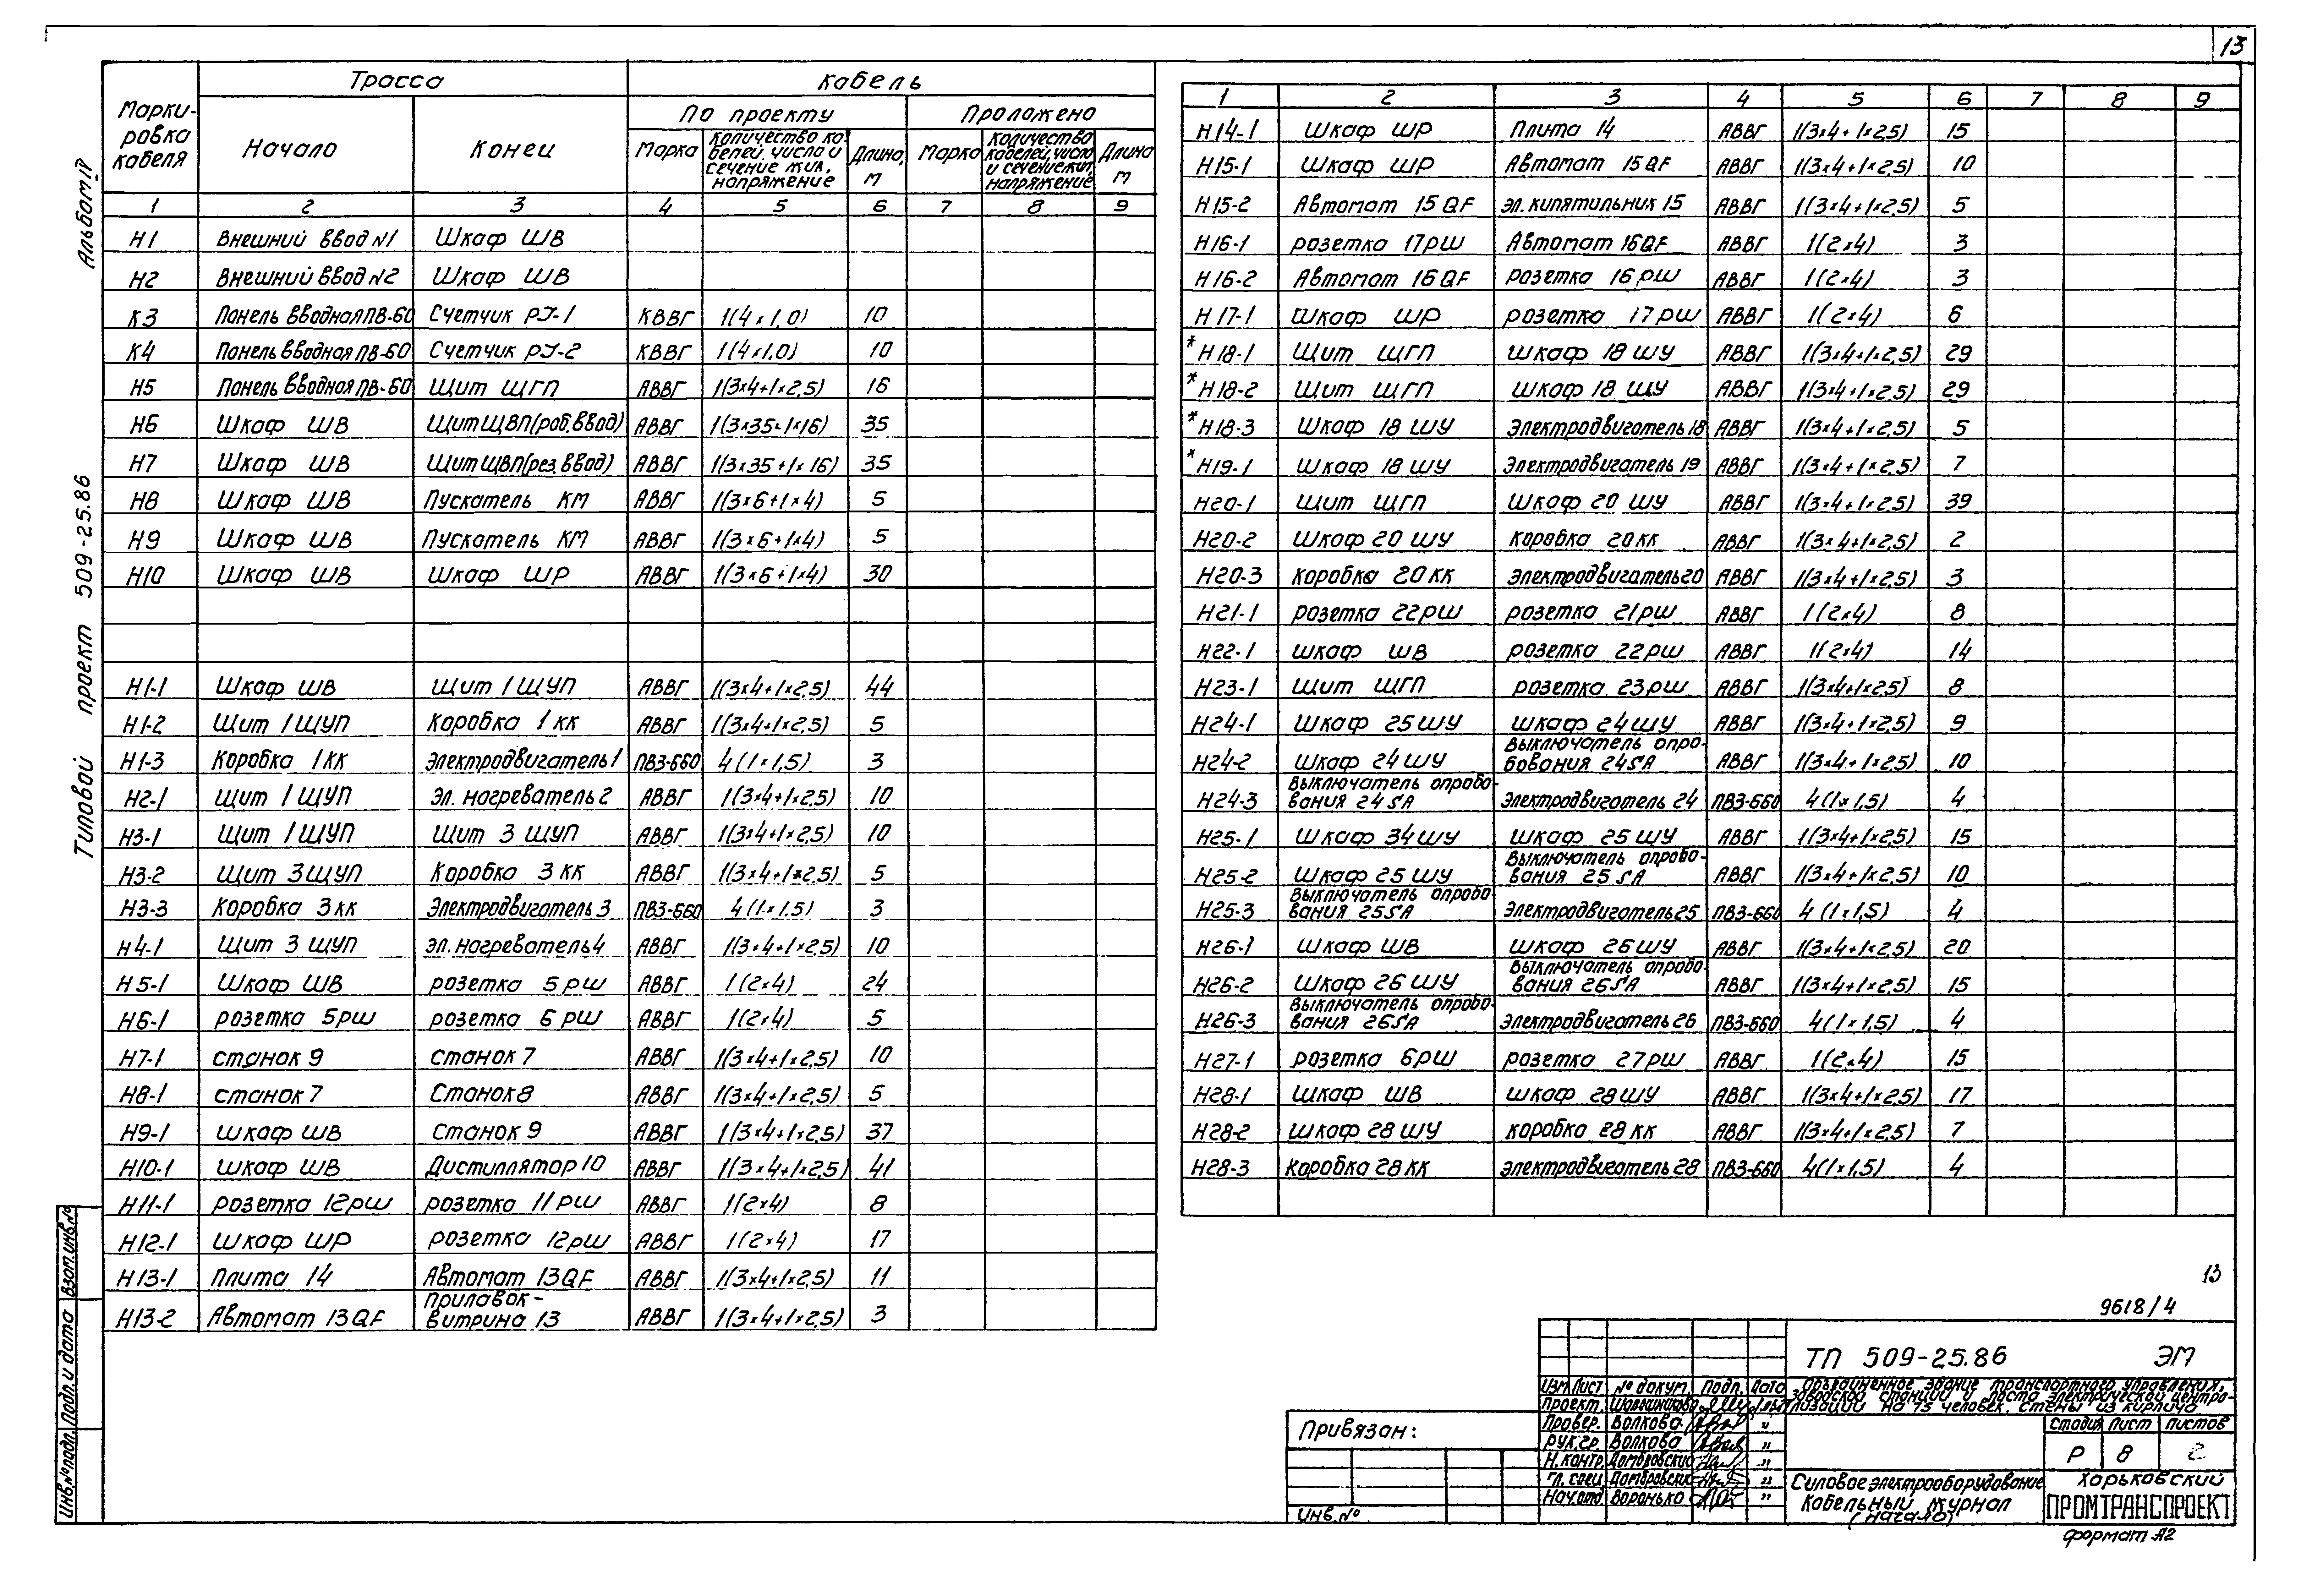 13
Альбом IV
Типовой проект 509-25.86
Маркировка кабеля | Трасса | Кабель
По проекту | Проложено
Начало | Конец | Марка | Количество кабелей, число и сечение жил, напряжение | Длина, м | Марка | Количество кабелей, число и сечение жил, напряжение | Длина м
1 2 3 4 5 6 7 8 9
Н1 Внешний ввод №1 Шкаф ШВ
Н2 Внешний ввод №2 Шкаф ШВ
К3 Панель вводная ПВ-60 Счетчик PJ-1 КВВГ 1(4×1,0) 10
К4 Панель вводная ПВ-60 Счетчик PJ-2 КВВГ 1(4×1,0) 10
Н5 Панель вводная ПВ-60 Щит ЩГП АВВГ 1(3×4+1×2,5) 16
Н6 Шкаф ШВ Щит ЩВП(раб.ввод) АВВГ 1(3×35+1×16) 35
Н7 Шкаф ШВ Щит ЩВП(рез.ввод) АВВГ 1(3×35+1×16) 35
Н8 Шкаф ШВ Пускатель КМ АВВГ 1(3×6+1×4) 5
Н9 Шкаф ШВ Пускатель КМ АВВГ 1(3×6+1×4) 5
Н10 Шкаф ШВ Шкаф ШР АВВГ 1(3×6+1×4) 30
Н1-1 Шкаф ШВ Щит 1 ЩУП АВВГ 1(3×4+1×2,5) 44
Н1-2 Щит 1 ЩУП Коробка 1 КК АВВГ 1(3×4+1×2,5) 5
Н1-3 Коробка 1КК Электродвигатель 1 ПВ3-660 4(1×1,5) 3
Н2-1 Щит 1 ЩУП Эл. нагреватель 2 АВВГ 1(3×4+1×2,5) 10
Н3-1 Щит 1 ЩУП Щит 3 ЩУП АВВГ 1(3×4+1×2,5) 10
Н3-2 Щит 3 ЩУП Коробка 3 КК АВВГ 1(3×4+1×2,5) 5
Н3-3 Коробка 3 КК Электродвигатель 3 ПВ3-660 4(1×1,5) 3
Н4-1 Щит 3 ЩУП Эл. нагреватель 4 АВВГ 1(3×4+1×2,5) 10
Н5-1 Шкаф ШВ розетка 5 РШ АВВГ 1(2×4) 24
Н6-1 розетка 5РШ розетка 6 РШ АВВГ 1(2×4) 5
Н7-1 станок 9 станок 7 АВВГ 1(3×4+1×2,5) 10
Н8-1 станок 7 Станок 8 АВВГ 1(3×4+1×2,5) 5
Н9-1 шкаф ШВ Станок 9 АВВГ 1(3×4+1×2,5) 37
Н10-1 шкаф ШВ Дистиллятор 10 АВВГ 1(3×4+1×2,5) 41
Н11-1 розетка 12РШ розетка 11РШ АВВГ 1(2×4) 8
Н12-1 Шкаф ШР розетка 12РШ АВВГ 1(2×4) 17
Н13-1 Плита 14 Автомат 13QF АВВГ 1(3×4+1×2,5) 11
Н13-2 Автомат 13QF Прилавок-витрина 13 АВВГ 1(3×4+1×2,5) 3
1 2 3 4 5 6 7 8 9
Н14-1 Шкаф ШР Плита 14 АВВГ 1(3×4+1×2,5) 15
Н15-1 Шкаф ШР Автомат 15QF АВВГ 1(3×4+1×2,5) 10
Н15-2 Автомат 15QF эл. кипятильник 15 АВВГ 1(3×4+1×2,5) 5
Н16-1 розетка 17РШ Автомат 16QF АВВГ 1(2×4) 3
Н16-2 Автомат 16QF розетка 16РШ АВВГ 1(2×4) 3
Н17-1 Шкаф ШР розетка 17РШ АВВГ 1(2×4) 6
*Н18-1 Щит ЩГП шкаф 18 ШУ АВВГ 1(3×4+1×2,5) 29
*Н18-2 Щит ЩГП шкаф 18 ШУ АВВГ 1(3×4+1×2,5) 29
*Н18-3 Шкаф 18 ШУ Электродвигатель 18 АВВГ 1(3×4+1×2,5) 5
*Н19-1 Шкаф 18 ШУ Электродвигатель 19 АВВГ 1(3×4+1×2,5) 7
Н20-1 Щит ЩГП Шкаф 20 ШУ АВВГ 1(3×4+1×2,5) 39
Н20-2 Шкаф 20 ШУ коробка 20 КК АВВГ 1(3×4+1×2,5) 2
Н20-3 Коробка 20 КК электродвигатель 20 АВВГ 1(3×4+1×2,5) 3
Н21-1 розетка 22РШ розетка 21РШ АВВГ 1(2×4) 8
Н22-1 шкаф ШВ розетка 22РШ АВВГ 1(2×4) 14
Н23-1 Щит ЩГП розетка 23РШ АВВГ 1(3×4+1×2,5) 8
Н24-1 Шкаф 25 ШУ шкаф 24 ШУ АВВГ 1(3×4+1×2,5) 9
Н24-2 Шкаф 24 ШУ выключатель опробования 24SA АВВГ 1(3×4+1×2,5) 10
Н24-3 Выключатель опробования 24SA Электродвигатель 24 ПВ3-660 4(1×1,5) 4
Н25-1 Шкаф 34 ШУ шкаф 25 ШУ АВВГ 1(3×4+1×2,5) 15
Н25-2 Шкаф 25 ШУ Выключатель опробования 25SA АВВГ 1(3×4+1×2,5) 10
Н25-3 Выключатель опробования 25SA Электродвигатель 25 ПВ3-660 4(1×1,5) 4
Н26-1 Шкаф ШВ шкаф 26 ШУ АВВГ 1(3×4+1×2,5) 20
Н26-2 Шкаф 26 ШУ Выключатель опробования 26SA АВВГ 1(3×4+1×2,5) 15
Н26-3 Выключатель опробования 26SA электродвигатель 26 ПВ3-660 4(1×1,5) 4
Н27-1 розетка 6РШ розетка 27РШ АВВГ 1(2×4) 15
Н28-1 Шкаф ШВ шкаф 28 ШУ АВВГ 1(3×4+1×2,5) 17
Н28-2 Шкаф 28 ШУ коробка 28 КК АВВГ 1(3×4+1×2,5) 7
Н28-3 Коробка 28 КК электродвигатель 28 ПВ3-660 4(1×1,5) 4
13
9618/4
ТП 509-25.86 ЭМ
Изм Лист № докум. Подп. Дата
Объединенное здание транспортного управления,
заводской станции и поста электрической центра-
лизации на 75 человек. Стены из кирпича
Проект.
Провер. Волкова "
Рук.гр. Волкова "
Н.контр. Домбровский "
Гл. спец Домбровский "
Нач.отд Воронько "
Стадия Лист Листов
Р 8
Силовое электрооборудование
Кабельный журнал
(начало)
Харьковский
ПРОМТРАНСПРОЕКТ
формат А2
Привязан:
Инв.№
Инв.№подл. Подп. и дата Взам.инв.№